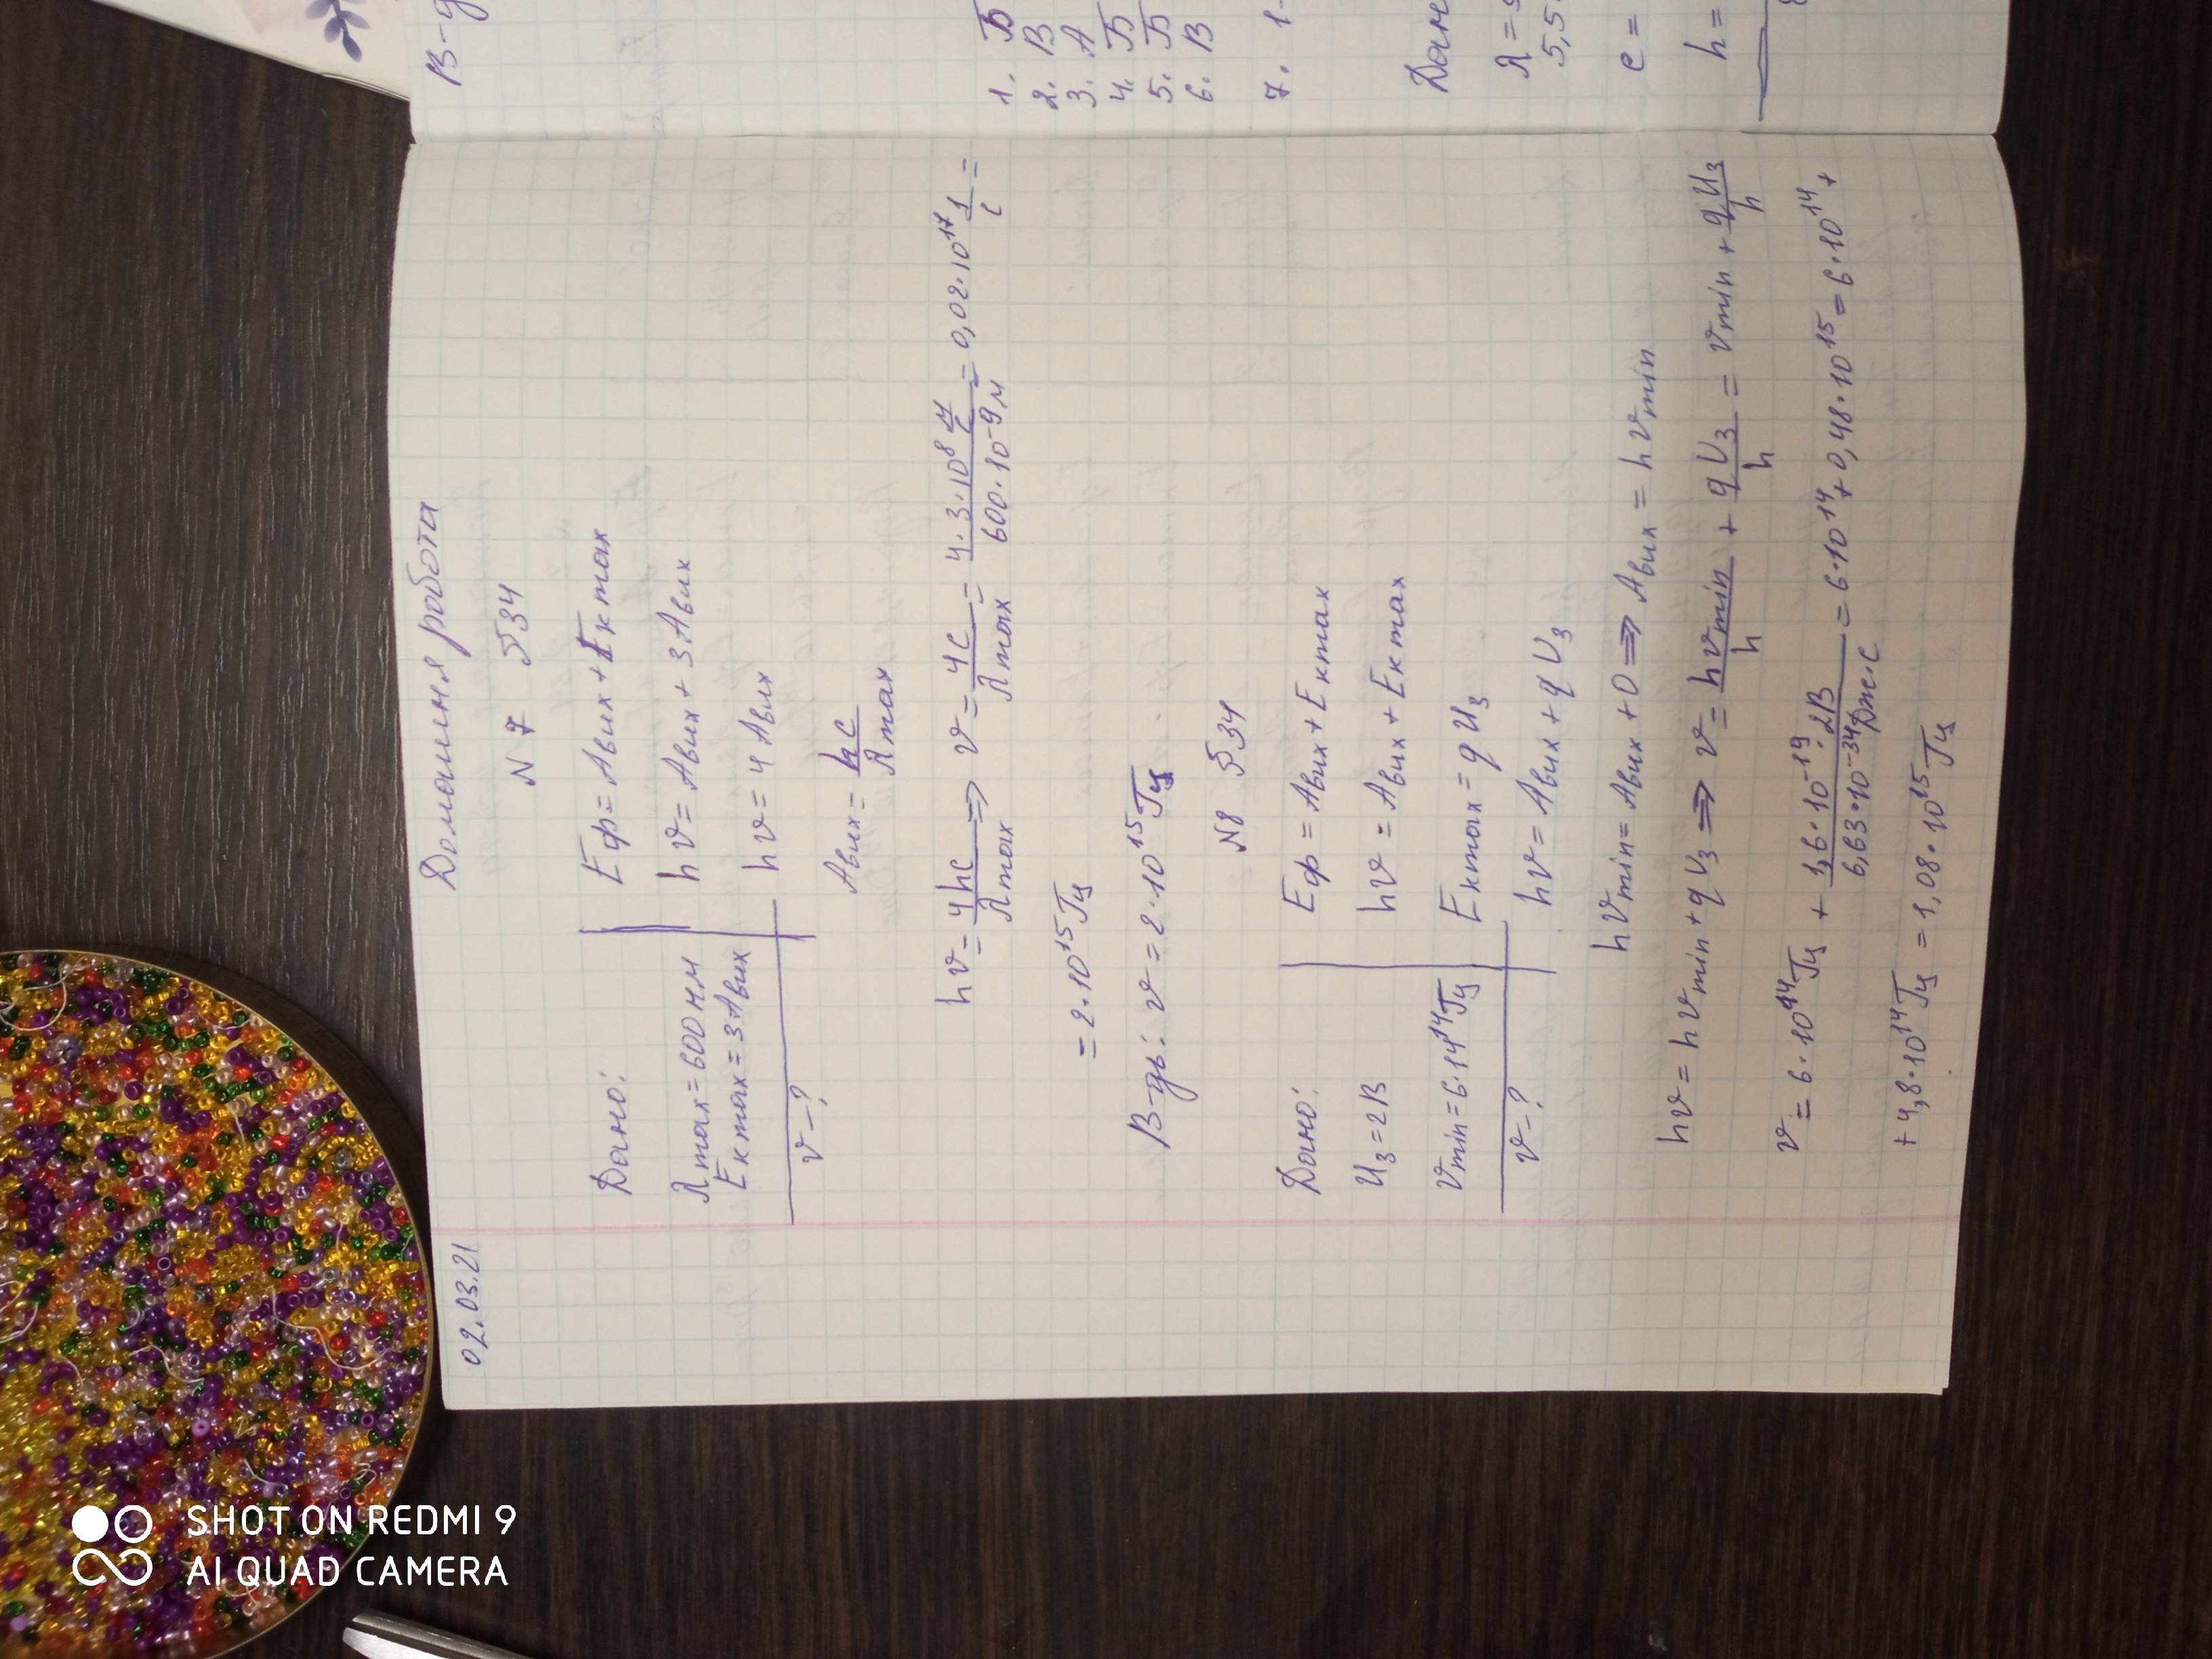 02.03.21
Домашня робота
N 7 §34
Дано:
λmax = 600 нм
Eк max = 3 Aвих
ν - ?
Eф = Aвих + Eк max
hν = Aвих + 3 Aвих
hν = 4 Aвих
Aвих = hc / λmax
hν = 4hc / λmax ⟹ ν = 4c / λmax = 4·3·10⁸ м/с / 600·10⁻⁹ м = 0,02·10¹⁷ 1/с =
= 2·10¹⁵ Гц
В-дь: ν = 2·10¹⁵ Гц
N8 §34
Дано:
U₃ = 2В
νmin = 6·14¹⁴ Гц
ν - ?
Eф = Aвих + Eк max
hν = Aвих + Eк max
Eк max = qU₃
hν = Aвих + qU₃
hνmin = Aвих + 0 ⟹ Aвих = hνmin
hν = hνmin + qU₃ ⟹ ν = hνmin / h + qU₃ / h = νmin + qU₃ / h
ν = 6·10¹⁴ Гц + 1,6·10⁻¹⁹·2В / 6,63·10⁻³⁴ Дж·с = 6·10¹⁴ + 0,48·10¹⁵ = 6·10¹⁴ +
+ 4,8·10¹⁴ Гц = 1,08·10¹⁵ Гц
1. Б
2. В
3. А
4. Б
5. Б
6. В
7. 1-
λ =
5,5
c =
h =
SHOT ON REDMI 9
AI QUAD CAMERA